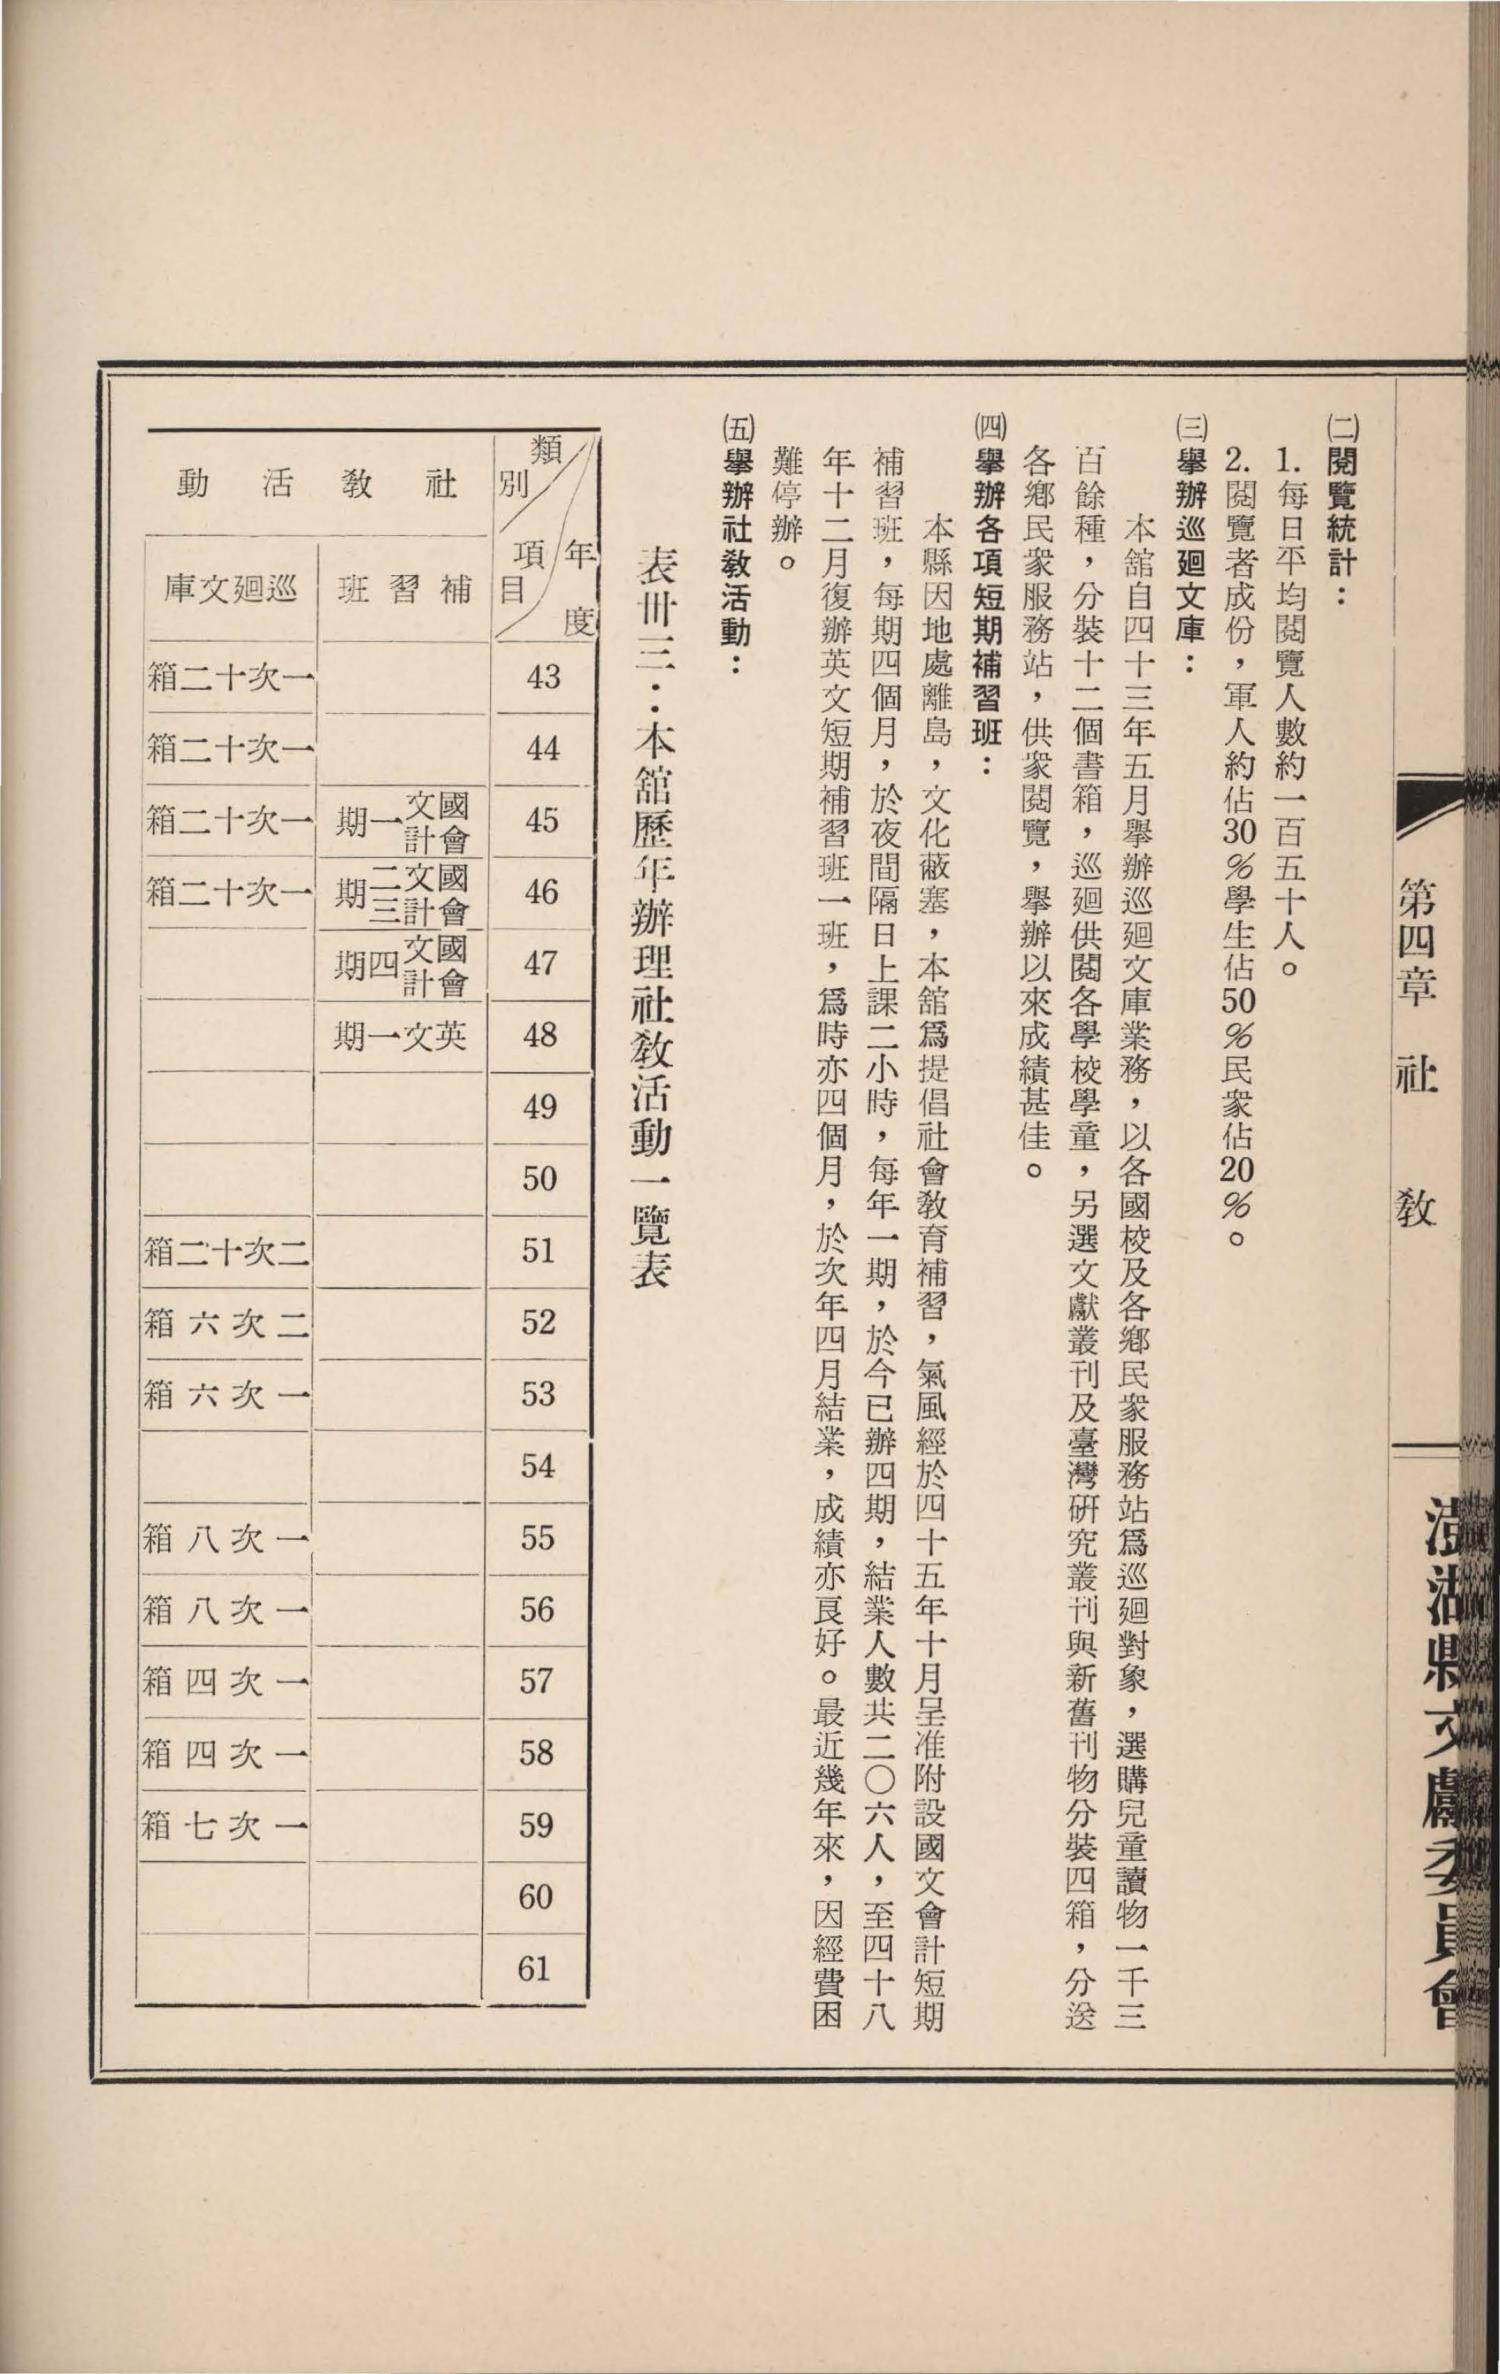 第四章　社　教
澎湖縣文獻委員會
㈡閱覽統計：
1.每日平均閱覽人數約一百五十人。
2.閱覽者成份，軍人約佔30％學生佔50％民衆佔20％。
㈢舉辦巡廻文庫：
本舘自四十三年五月舉辦巡廻文庫業務，以各國校及各鄉民衆服務站爲巡廻對象，選購兒童讀物一千三
百餘種，分裝十二個書箱，巡廻供閱各學校學童，另選文獻叢刊及臺灣研究叢刊與新舊刊物分裝四箱，分送
各鄉民衆服務站，供衆閱覽，舉辦以來成績甚佳。
㈣舉辦各項短期補習班：
本縣因地處離島，文化蔽塞，本舘爲提倡社會敎育補習，氣風經於四十五年十月呈准附設國文會計短期
補習班，每期四個月，於夜間隔日上課二小時，每年一期，於今已辦四期，結業人數共二〇六人，至四十八
年十二月復辦英文短期補習班一班，爲時亦四個月，於次年四月結業，成績亦良好。最近幾年來，因經費困
難停辦。
㈤舉辦社敎活動：
表卅三：本舘歷年辦理社敎活動一覽表
類別　項目　年度
社敎活動
補習班　巡廻文庫
43　一次十二箱
44　一次十二箱
45　國文會計一期　一次十二箱
46　國文會計二三期　一次十二箱
47　國文會計四期
48　英文一期
49
50
51　二次十二箱
52　二次六箱
53　一次六箱
54
55　一次八箱
56　一次八箱
57　一次四箱
58　一次四箱
59　一次七箱
60
61